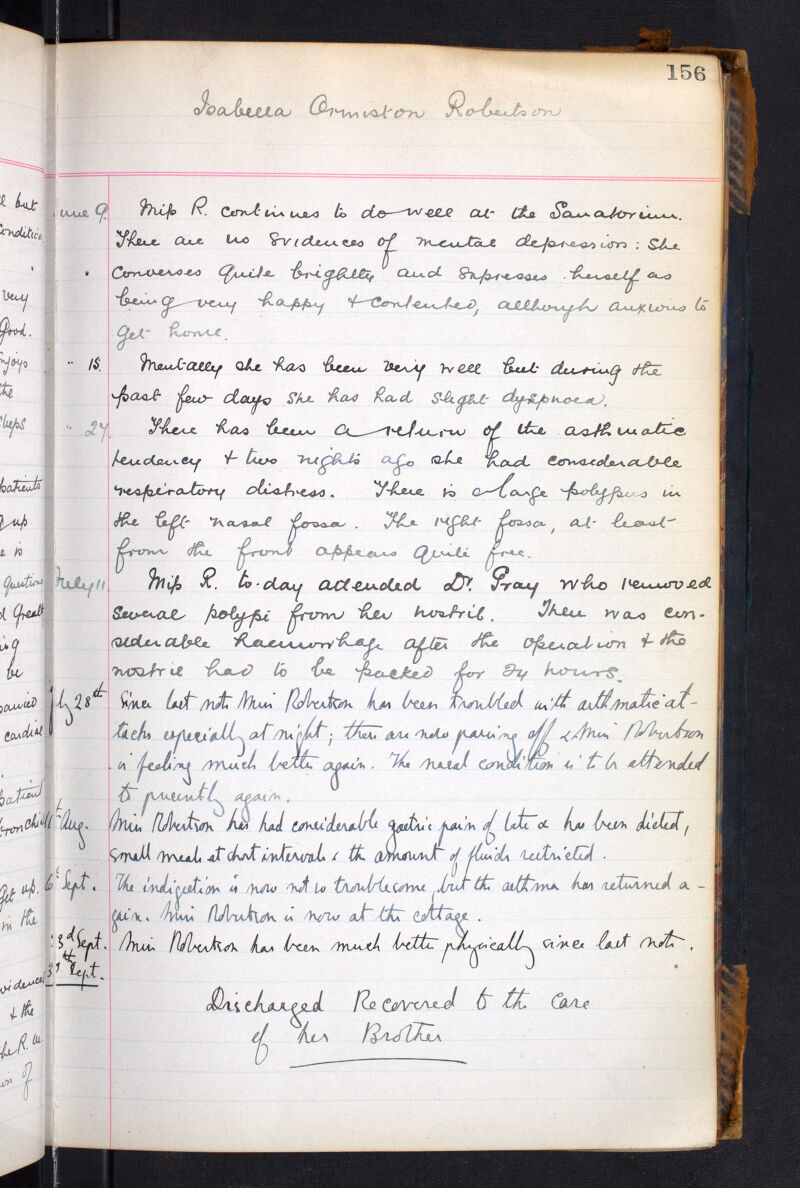 156
Isabella Ormiston Robertson
June 9. Miss R. continues to do well at the Sanatorium.
There are no Evidences of mental depression: She
Converses Quite brightly and Expresses herself as
being very happy & contented, although anxious to
Get home.
" 15. Mentally she has been very well but during the
past few days She has had slight dyspnoea.
" 24. There has been a return of the asthmatic
tendency & two nights ago she had considerable
respiratory distress. There is a large polypus in
the left nasal fossa. The right fossa, at least
from the front appears Quite free.
July 11. Miss R. to-day attended Dr. Gray who removed
Several polypi from her nostril. There was con-
siderable haemorrhage after the operation & the
nostril had to be packed for 24 hours.
July 28th Since last note Miss Robertson has been troubled with asthmatic at-
tacks especially at night; these are now passing off & Miss Robertson
is feeling much better again. The nasal condition is to be attended
to presently again.
11th Aug. Miss Robertson has had considerable gastric pain of late & has been dieted,
small meals at short intervals & the amount of fluids restricted.
6th Sept. The indigestion is now not so troublesome, but the asthma has returned a-
gain. Miss Robertson is now at the cottage.
3d Sept. Miss Robertson has been much better physically since last note.
th Sept.
Discharged Recovered to the Care
of her Brother
but
condition
very
Good.
Enjoys
the
patients
up
is
Question
be
cardiac
patient
Get up.
in the
evidence
& the
of